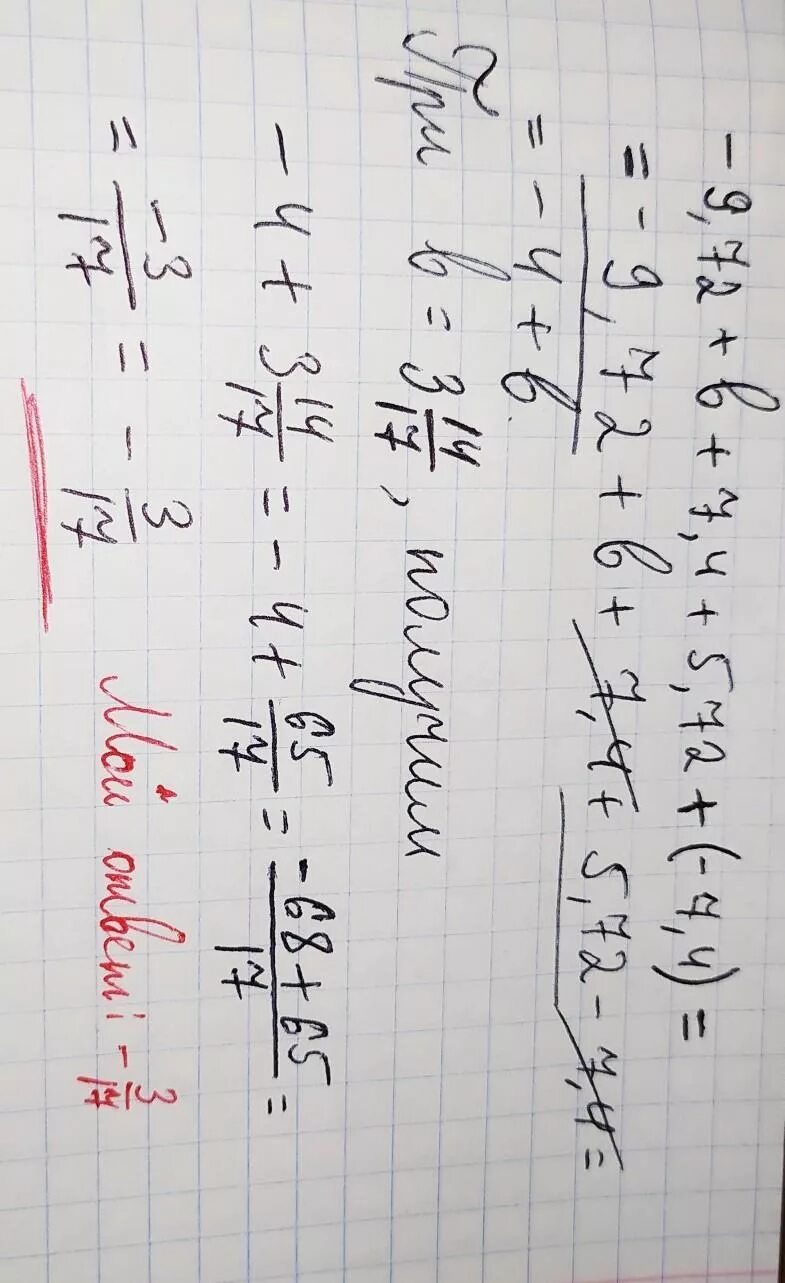 -9,72 + b + 7,4 + 5,72 + (-7,4) =
= -9,72 + b + 7,4 + 5,72 - 7,4 =
= -4 + b.
При b = 3 14/17, получим
-4 + 3 14/17 = -4 + 65/17 = (-68 + 65)/17 =
= -3/17 = - 3/17 Мой ответ: - 3/17